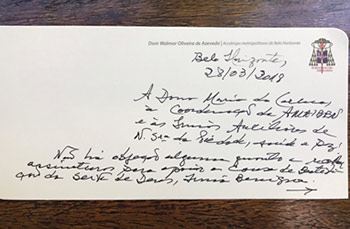 Dom Walmor Oliveira de Azevedo | Arcebispo metropolitano de Belo Horizonte
Belo Horizonte,
28/03/2018
A Dona Maria do Carmo,
à Coordenação da
e às Irmãs Auxiliares de
N. Sra da Piedade, saúde e paz!
Não há objeção alguma quanto a
assinaturas para apoiar a Causa de
ção da Serva de Deus, Irmã Benigna.